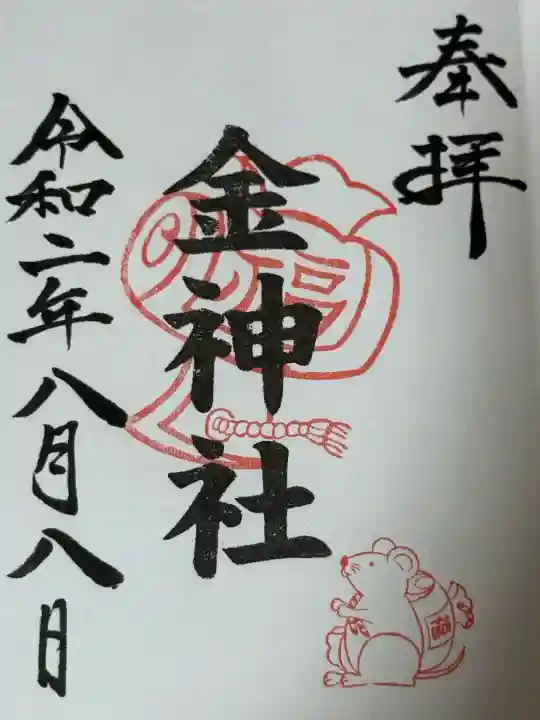 奉拝
金神社
令和二年八月八日
福